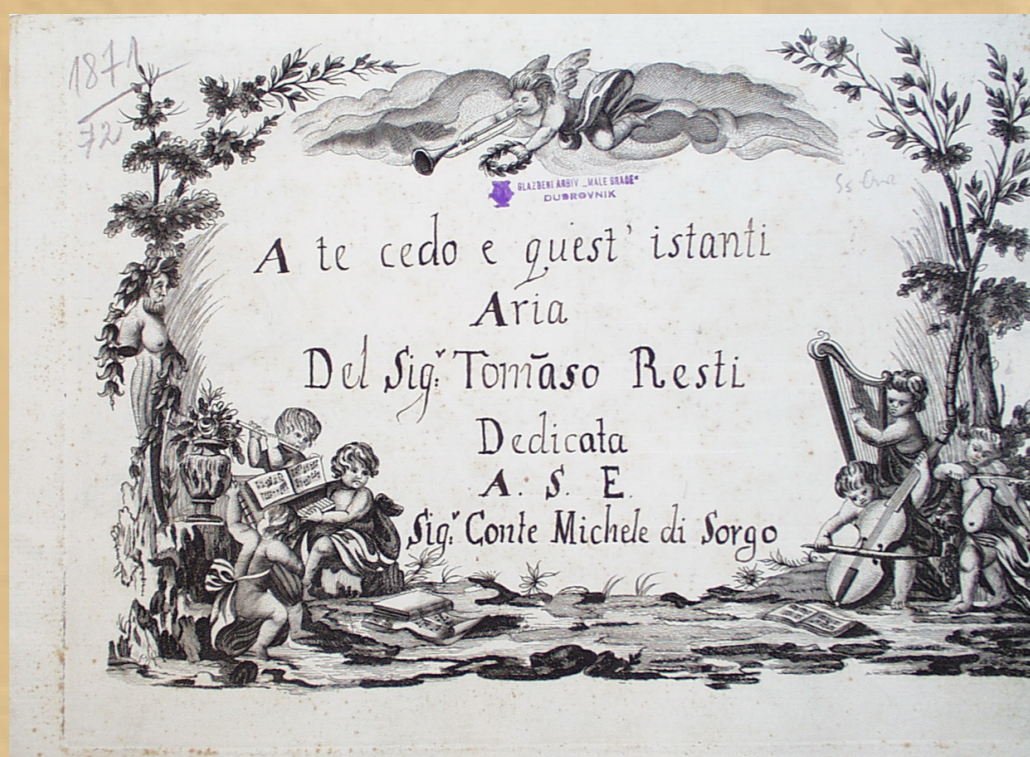 1871
72
GLAZBENI ARHIV „MALE BRAĆE"
DUBROVNIK
A te cedo e quest' istanti
Aria
Del Sig.r Tom̄aso Resti
Dedicata
A. S. E.
Sig.r Conte Michele di Sorgo